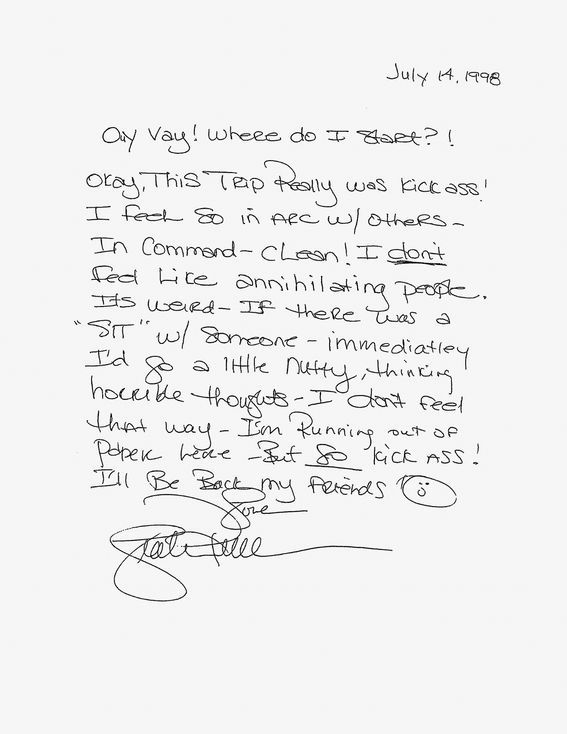 July 14, 1998
Oy Vay! Where do I start?!
Okay, This Trip Really was kick ass!
I feel so in ARC w/ others -
In Command - clean! I don't
feel like annihilating people.
Its weird - If there was a
"SIT" w/ someone - immediatley
I'd go a little nutty, thinking
horrible thoughts - I don't feel
that way - I'm Running out of
Paper here - But SO kick ASS!
I'll Be Back my friends
Love